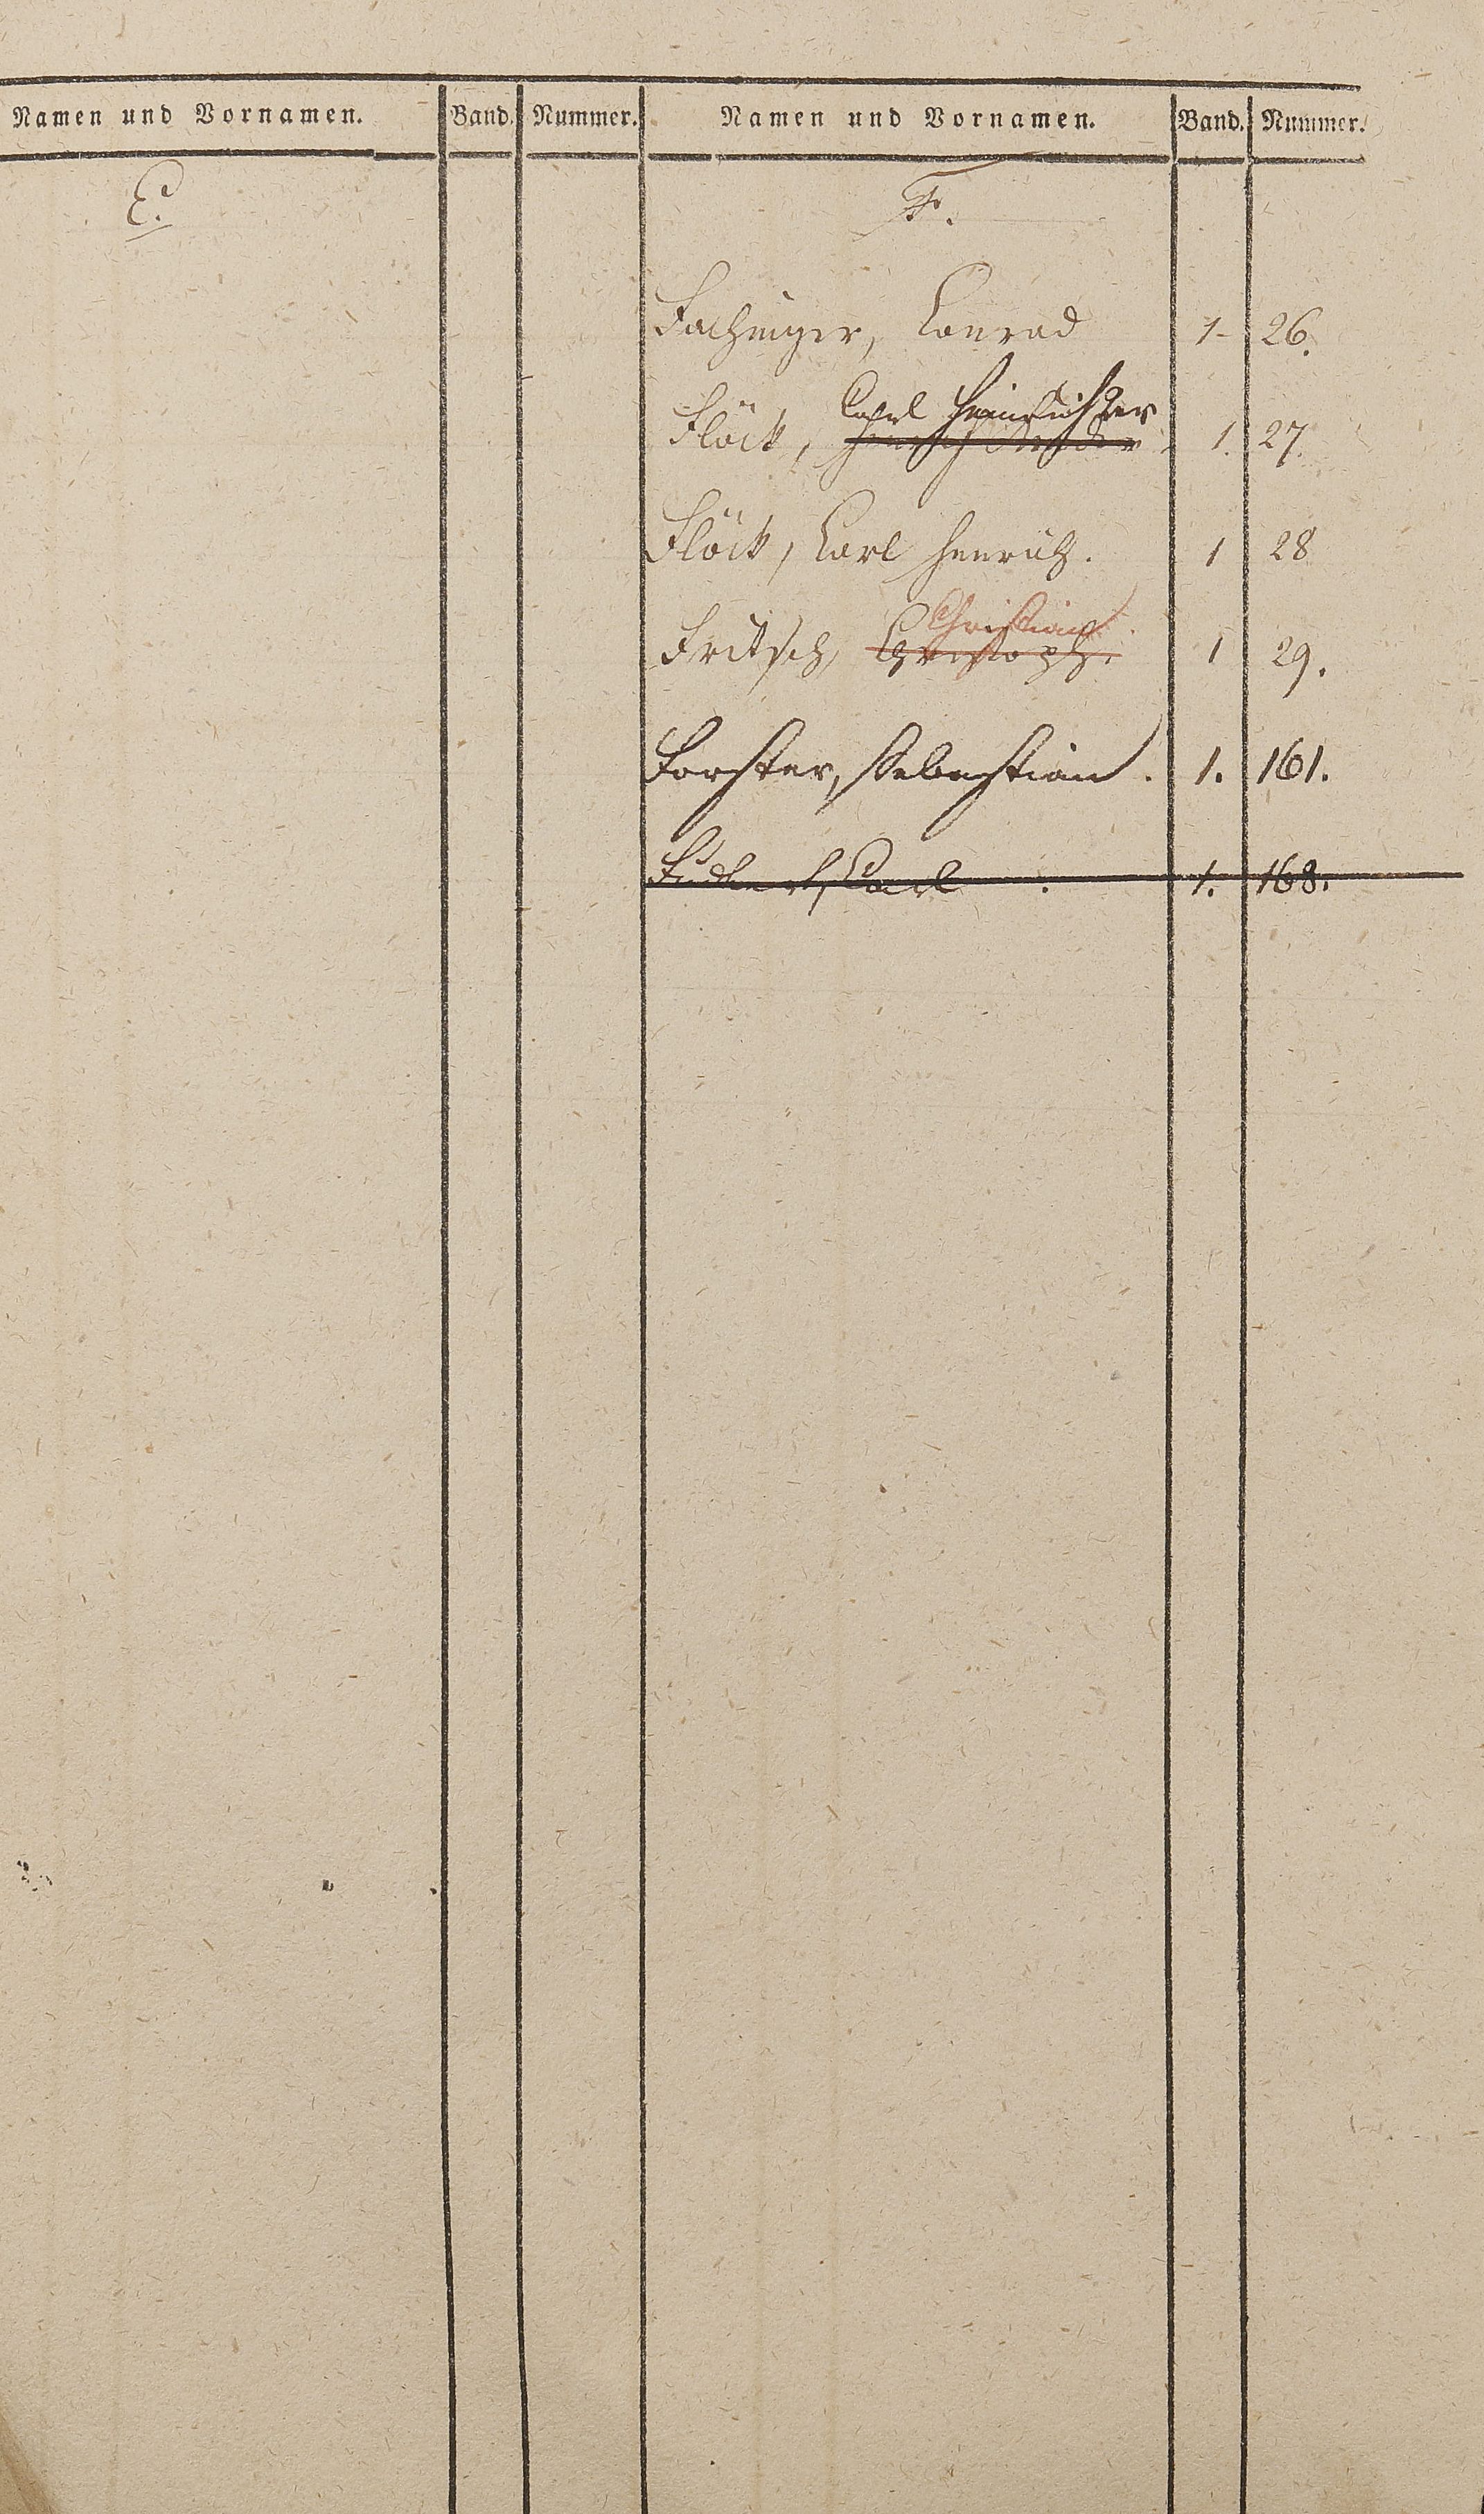 Namen und Vornamen. Band. Nummer. Namen und Vornamen. Band. Nummer.
E. F.
Fachinger, Conrad 1- 26.
Carl Heinrich
Flöck, 1. 27.
Flöck, Carl Henrich. 1 28
Christian.
Fritsch, Christoph. 1 29.
Forster, Sebastian. 1. 161.
Carl. 1. 168.